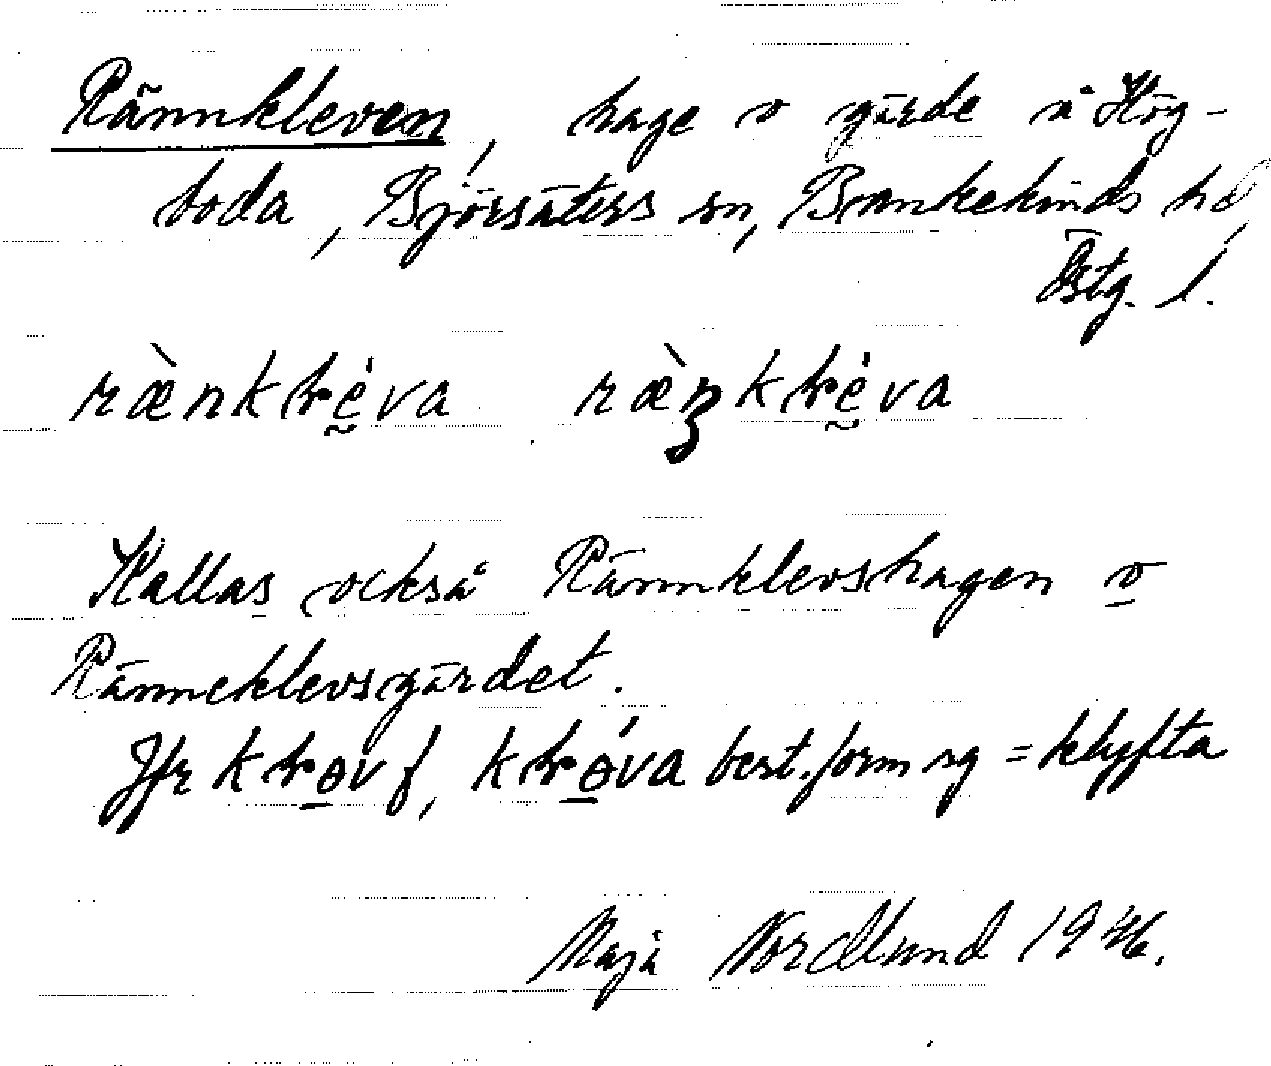 Rännkleven, hage o gärde å Hög-
boda, Björsäters sn, Bankekinds hd,
Östg. l.
rænkkléva ræŋkkléva
Kallas också Rännklevshagen o
Ränneklevsgärdet.
Jfr kløv f, kløva best. form sg = klyfta
Maja Nordlund 1946.